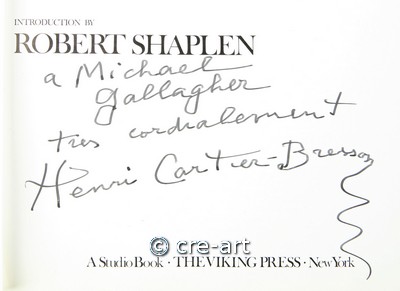 INTRODUCTION BY
ROBERT SHAPLEN
a Michael
gallagher
tres cordialement
Henri Cartier-Bresson
© cre-art
A Studio Book · THE VIKING PRESS · New York